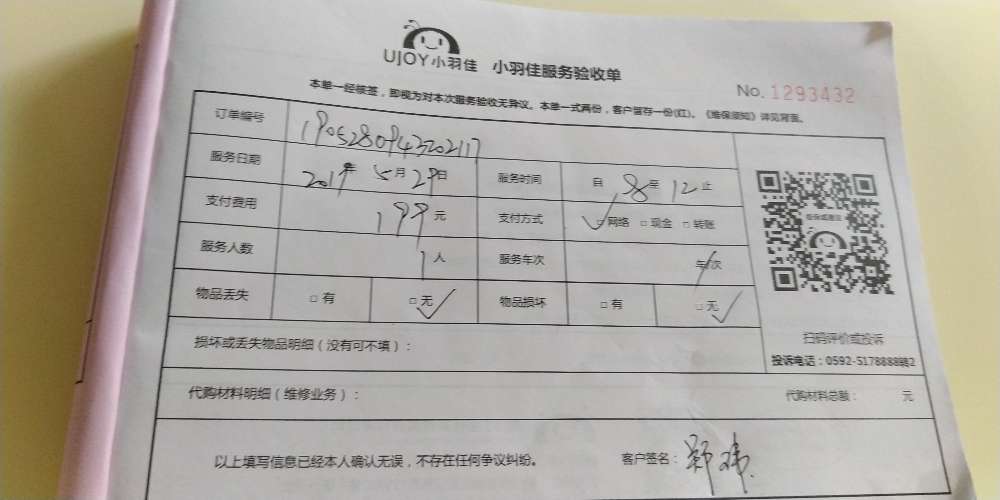 UJOY小羽佳 小羽佳服务验收单
No. 1293432
本单一经核签，即视为对本次服务验收无异议。本单一式两份，客户留存一份(红)。《维保须知》详见背面。
订单编号 190528094320217
服务日期 2019年 5月 29日 服务时间 自 8 至 12 止
支付费用 199元 支付方式 ✓□网络 □现金 □转账
服务人数 1人 服务车次 / 车/次
物品丢失 □有 □无✓ 物品损坏 □有 □无✓
扫码评价或投诉
损坏或丢失物品明细（没有可不填）：
投诉电话：0592-5178888转2
代购材料明细（维修业务）： 代购材料总额： 元
以上填写信息已经本人确认无误，不存在任何争议纠纷。 客户签名：郑